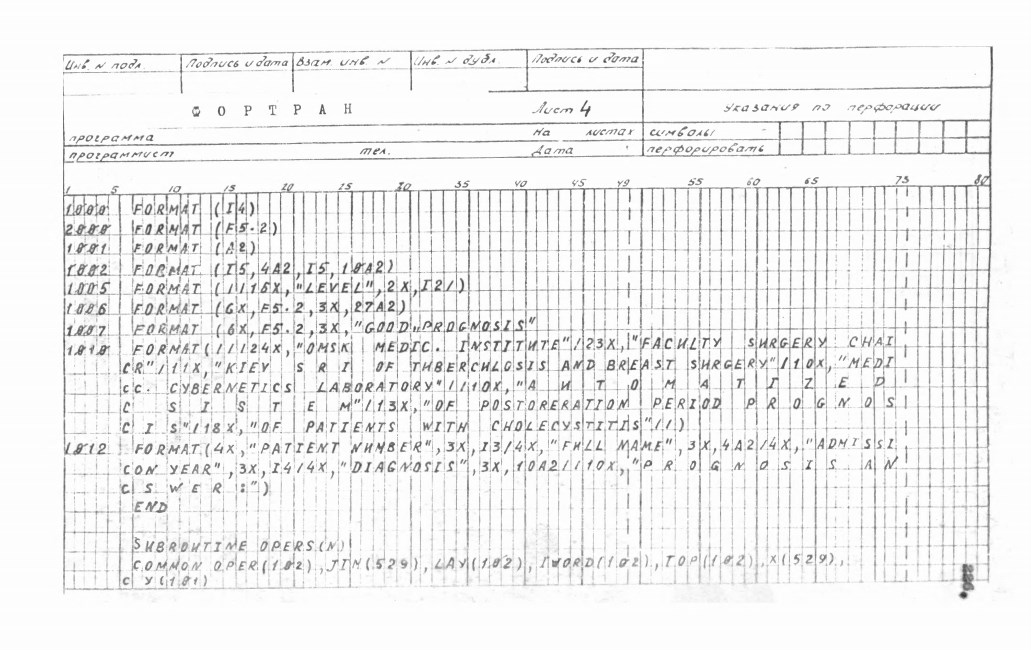 Инв. N подл. Подпись и дата Взам. инв N Инв. N дубл. Подпись и дата
ФОРТРАН Лист 4 Указания по перфорации
программа На листах символы
программист тел. Дата перфорировать
1 5 10 15 20 25 30 35 40 45 49 55 60 65 73 80
1000 FORMAT (I4)
2000 FORMAT (F5.2)
1001 FORMAT (A2)
1002 FORMAT (I5,4A2,I5,10A2)
1005 FORMAT (//15X,"LEVEL",2X,I2/)
1006 FORMAT (6X,F5.2,3X,27A2)
1007 FORMAT (6X,F5.2,3X,"GOOD PROGNOSIS"
1010 FORMAT(///24X,"OMSK MEDIC. INSTITUTE"/23X,"FACULTY SURGERY CHAI
CR"/11X,"KIEV SRI OF TUBERCULOSIS AND BREAST SURGERY"/10X,"MEDI
CC. CYBERNETICS LABORATORY"///10X,"A U T O M A T I Z E D
C S I S T E M"/13X,"OF POSTORERATION PERIOD P R O G N O S
C I S"/18X,"OF PATIENTS WITH CHOLECYSTITIS"//)
1012 FORMAT(4X,"PATIENT NUMBER",3X,I3/4X,"FULL NAME",3X,4A2/4X,"ADMISSI
CON YEAR",3X,I4/4X,"DIAGNOSIS",3X,10A2//10X,"P R O G N O S I S A N
C S W E R :")
END
SUBROUTINE OPERS(N)
COMMON OPER(102),JIN(529),LAY(102),IWORD(102),TOP(102),X(529),
C Y(101)
226.